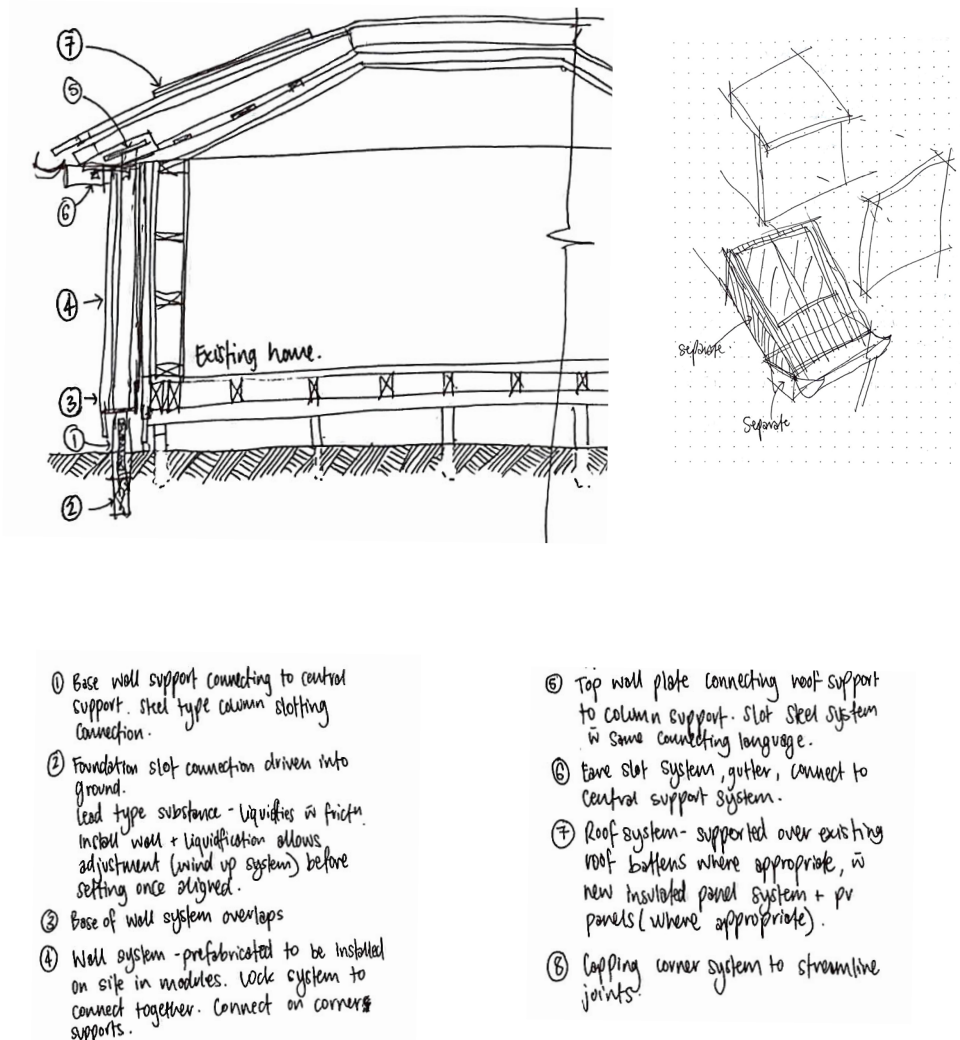 7
5
6
4
Existing home.
3
1
2
separate.
Separate
1 Base wall support connecting to central
support. Steel type column slotting
connection.
2 Foundation slot connection driven into
ground.
Lead type substance - liquifies w̄ frictn.
Install wall + liquidfication allows
adjustment (wind up system) before
setting once aligned.
3 Base of wall system overlaps
4 Wall system - prefabricated to be installed
on site in modules. Lock system to
connect together. Connect on corners
supports.
5 Top wall plate connecting roof support
to column support. Slot steel system
w̄ same connecting language.
6 Eave slot system, gutter, connect to
central support system.
7 Roof system - supported over existing
roof battens where appropriate, w̄
new insulated panel system + pv
panels (where appropriate).
8 Capping corner system to streamline
joints.